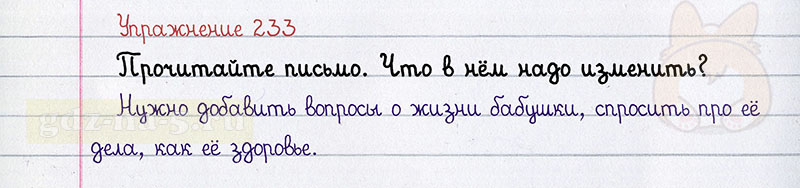 Упражнение 233
Прочитайте письмо. Что в нём надо изменить?
Нужно добавить вопросы о жизни бабушки, спросить про её
дела, как её здоровье.